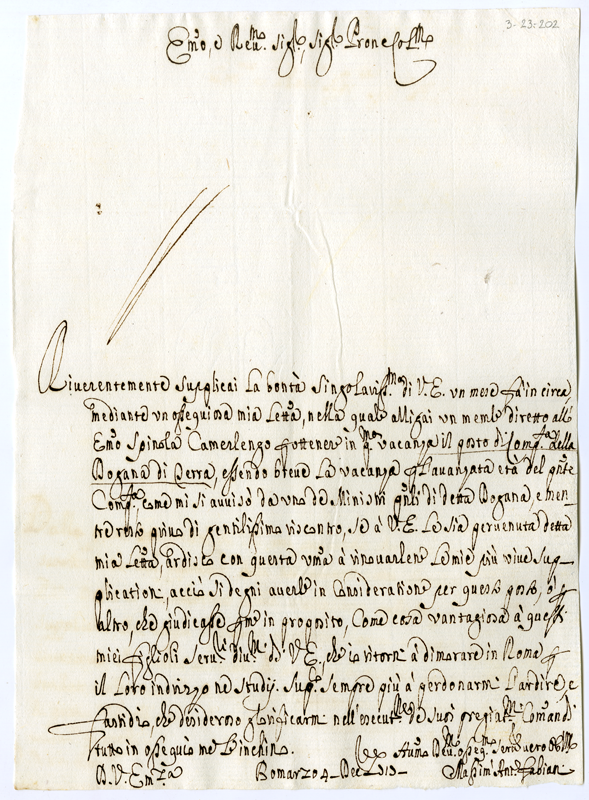 3-23-202
Emo, e Revmo. Sigre, sigre Prone Colmo
Riverentemente supplicai la bontà singolarissma. di V.E. un mese fà in circa,
mediante un ossequiosa mia lettra, nella quale alligai un meml. diretto all'
Emo Spinola Camerlengo p ottener in pma vacanza il posto di Compta della
Dogana di Terra, essendo breve la vacanza p l'avanzata età del pnte
Compta, come mi si avvisò da uno de Ministri di detta Dogana, e men-
tre resto privo di gentilissimo riscontro, se à V.E. le sia pervenuta detta
mia lettra, ardisco con questa uma à rinovarlene le mie più vive sup-
plicationi, acciò si degni averle in consideratione per questo posto, ò p
altro, che giudicasse pme in proposito, come cosa vantagiosa à questi
miei figlioli di V.E, che io ritorni à dimorare in Roma p
il loro indrizzo ne studij. Supco sempre più à perdonarmi l'ardire, e
fastidio, che desideroso glorificarmi nell'esecutne de suoi pregiatmi Comandi
tutto in ossequio me l'inchino.
D. V. Emza
Bomarzo 4 Xbre 1715
Humo Devmo osseqmo serre vero oblmo
Massimo Anto Fabiani